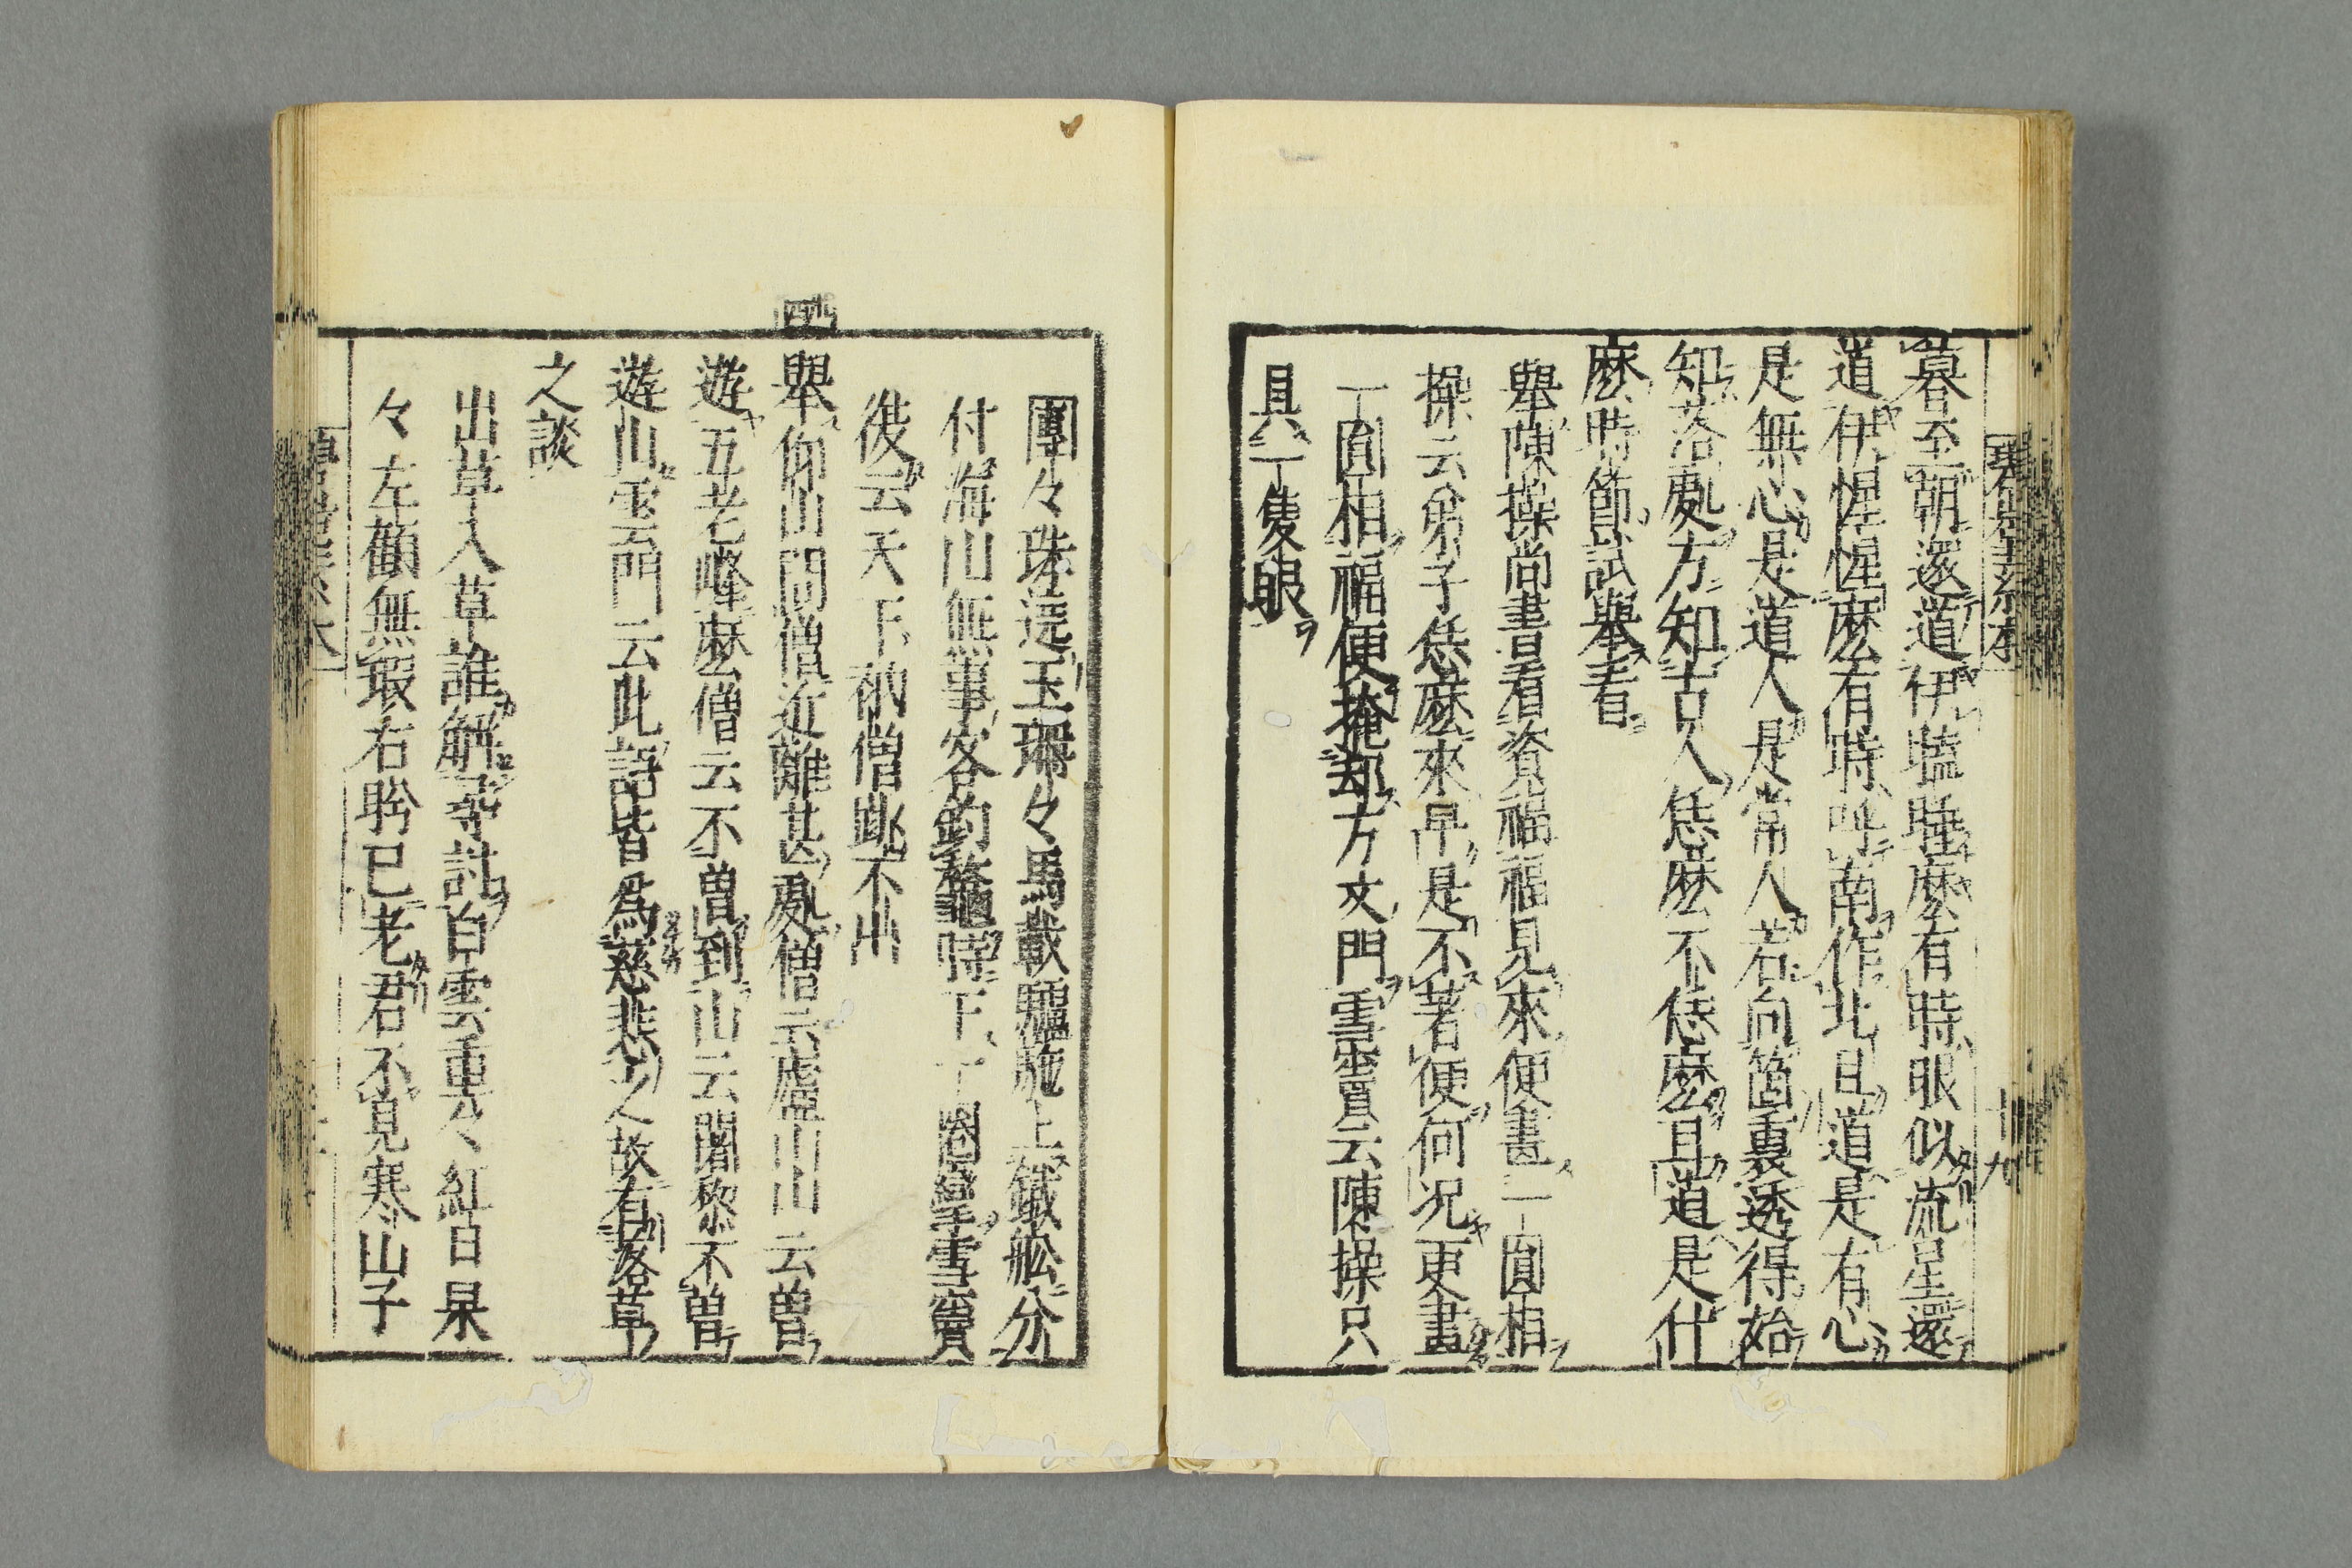 暮至朝還道伊瞌睡麽有時眼似流星還
道伊惺惺麽有時呼南作北且道是有心
是無心是道人是常人若向箇裏透得始
知落處方知古人恁麽不恁麽且道是什
麽時節試舉看
舉陳操尚書看資福福見來便畫一圓相
操云弟子恁麽來早是不著便何況更畫
一圓相福便掩却方丈門雪竇云陳操只
具一隻眼
十九
團々珠遶玉珊々馬載驢駞上鐵舩分
付海山無事客釣鼇時下一圈攣雪竇
復云天下衲僧跳不出
舉仰山問僧近離甚處僧云廬山山云曽
遊五老峰麽僧云不曽到山云闍黎不曽
遊山雲門云此語皆爲慈悲之故有落草
之談
出草入草誰解尋討白雲重々紅日杲
々左顧無瑕右盻已老君不見寒山子